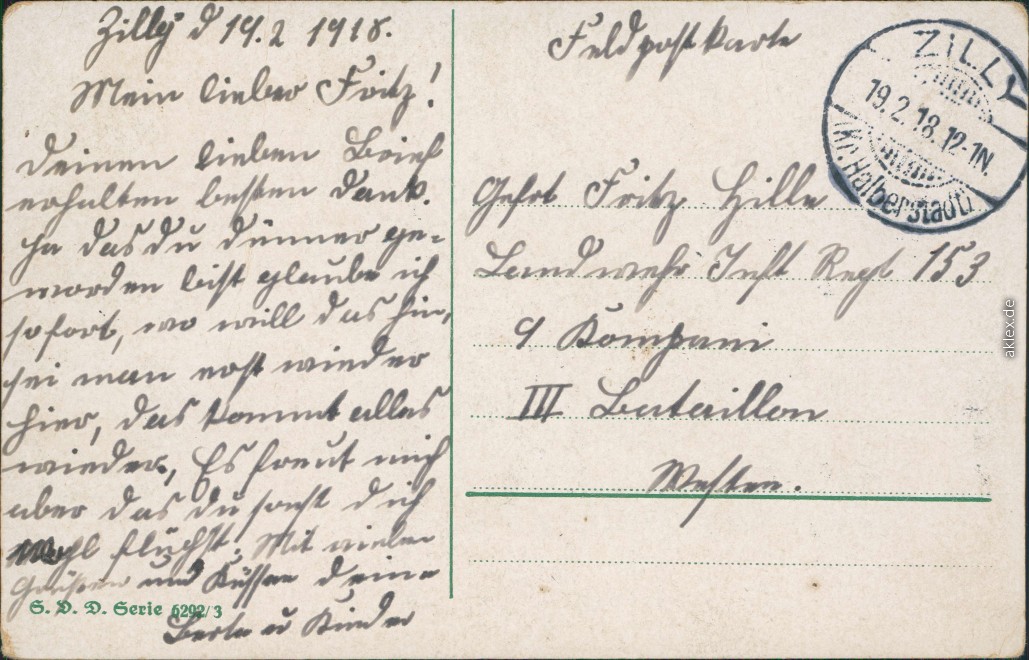 Zilly d 19.2 1918.
Mein lieber Fritz!
Deinen lieben Brief
erhalten besten Dank.
ja das du dünner ge-
worden bist glaube ich
sofort, wo will das hin,
sei man erst wieder
hier, das kommt alles
wieder, Es freut mich
aber das du sonst dich
wohl fühlst. Mit vielen
Grüßen und Küssen deine
Berta u Kinder
S. D. D. Serie 6292/3
Feldpostkarte
ZILLY
19.2.18.12-1N.
(Kr. Halberstadt)
Gefrt Fritz Hille
Landwehr Inft Regt 153
9 Kompani
III Bataillon
Westen.
aklex.de